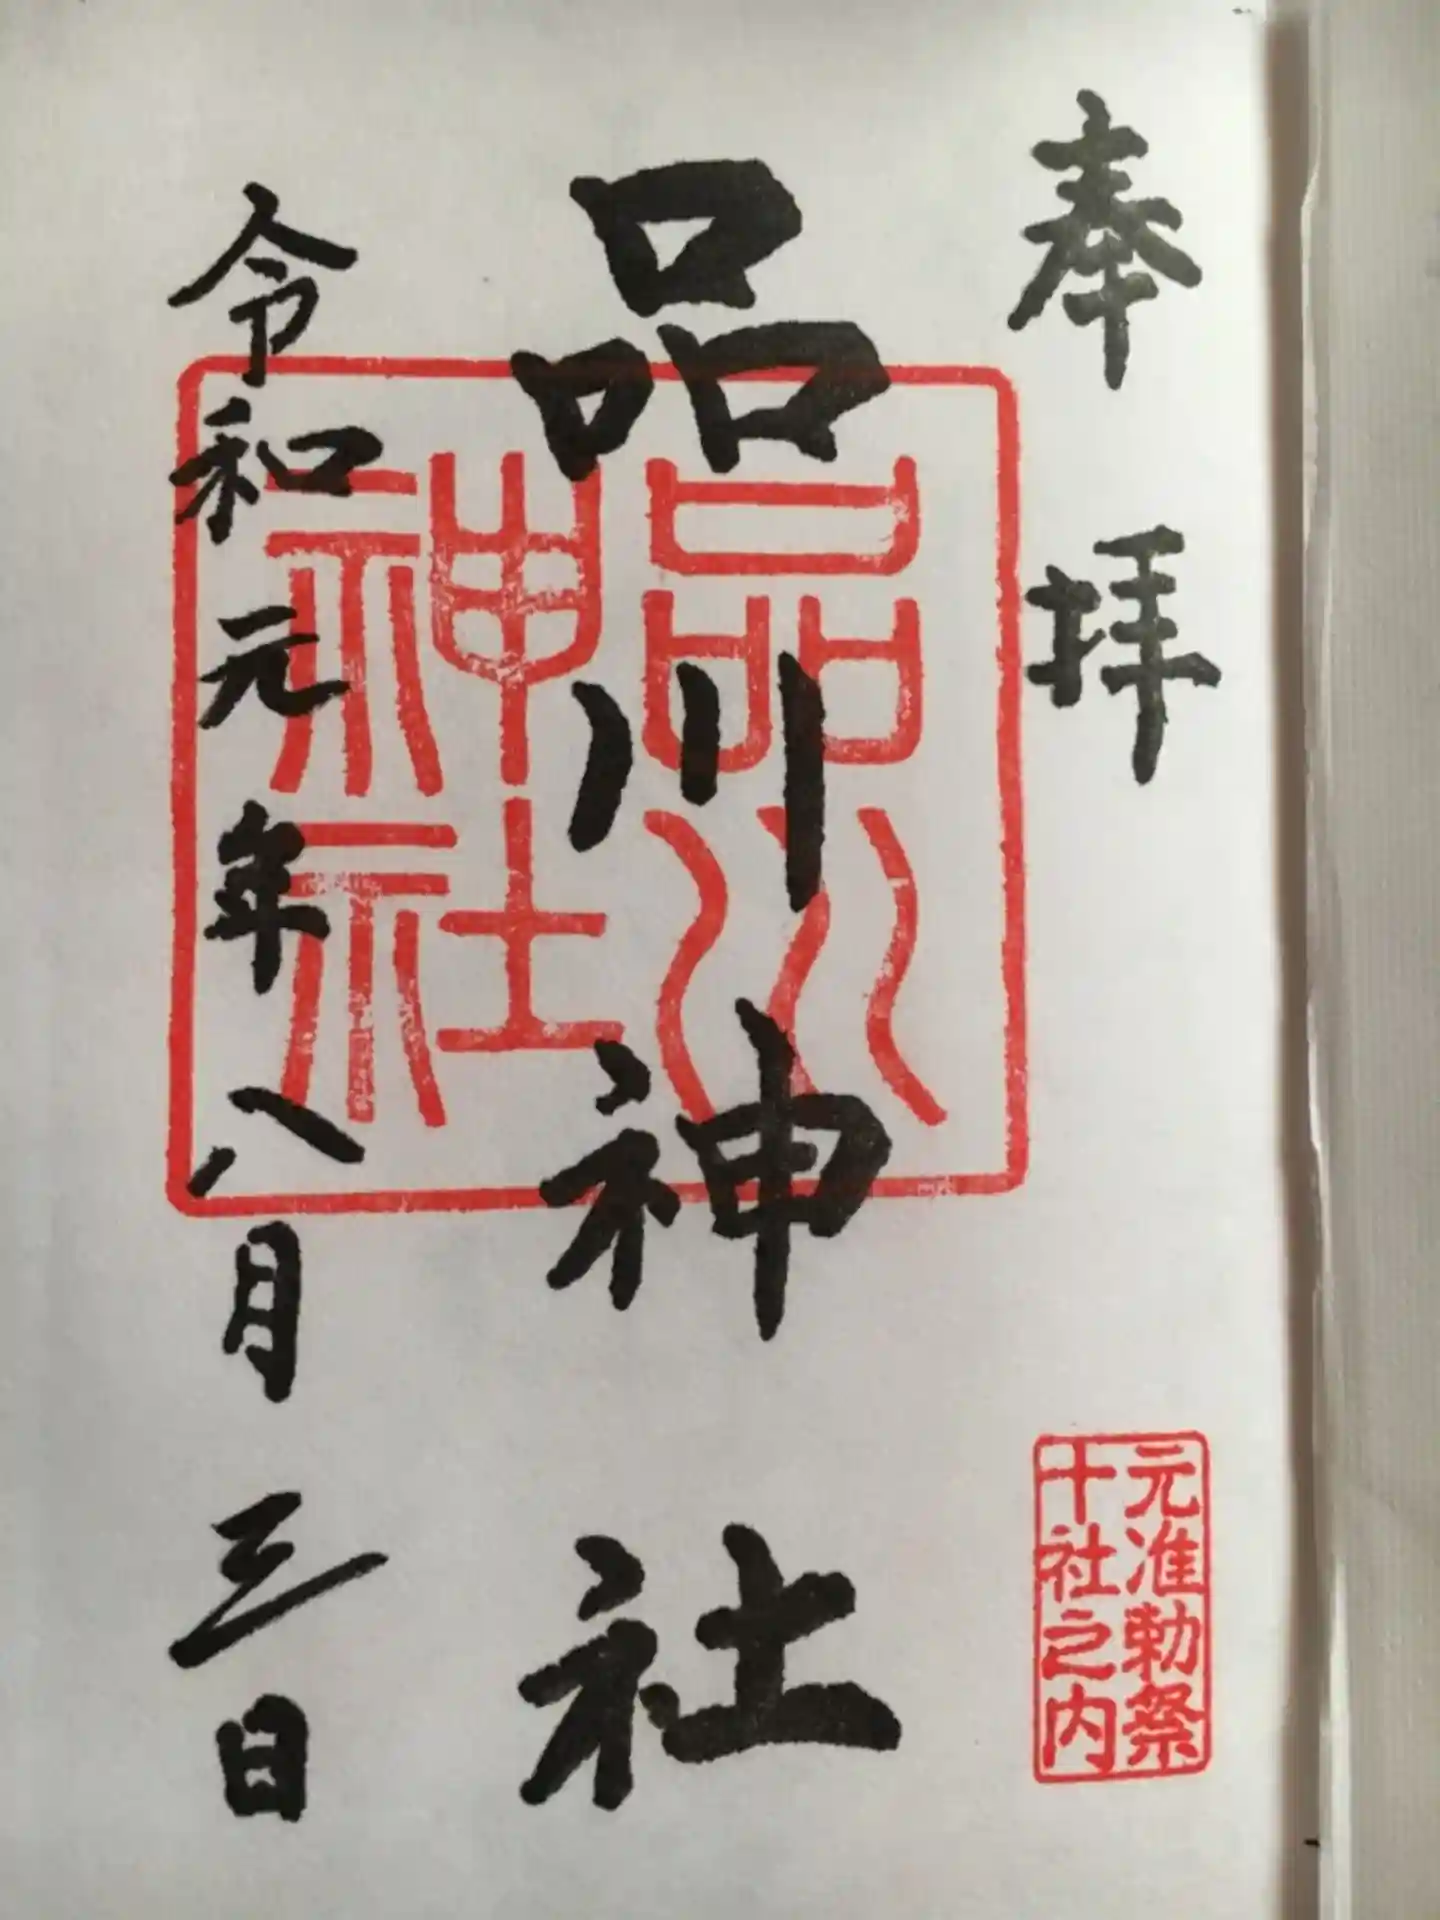 奉拝
元准勅祭
十社之内
品川神社
品川
神社
令和元年八月三日